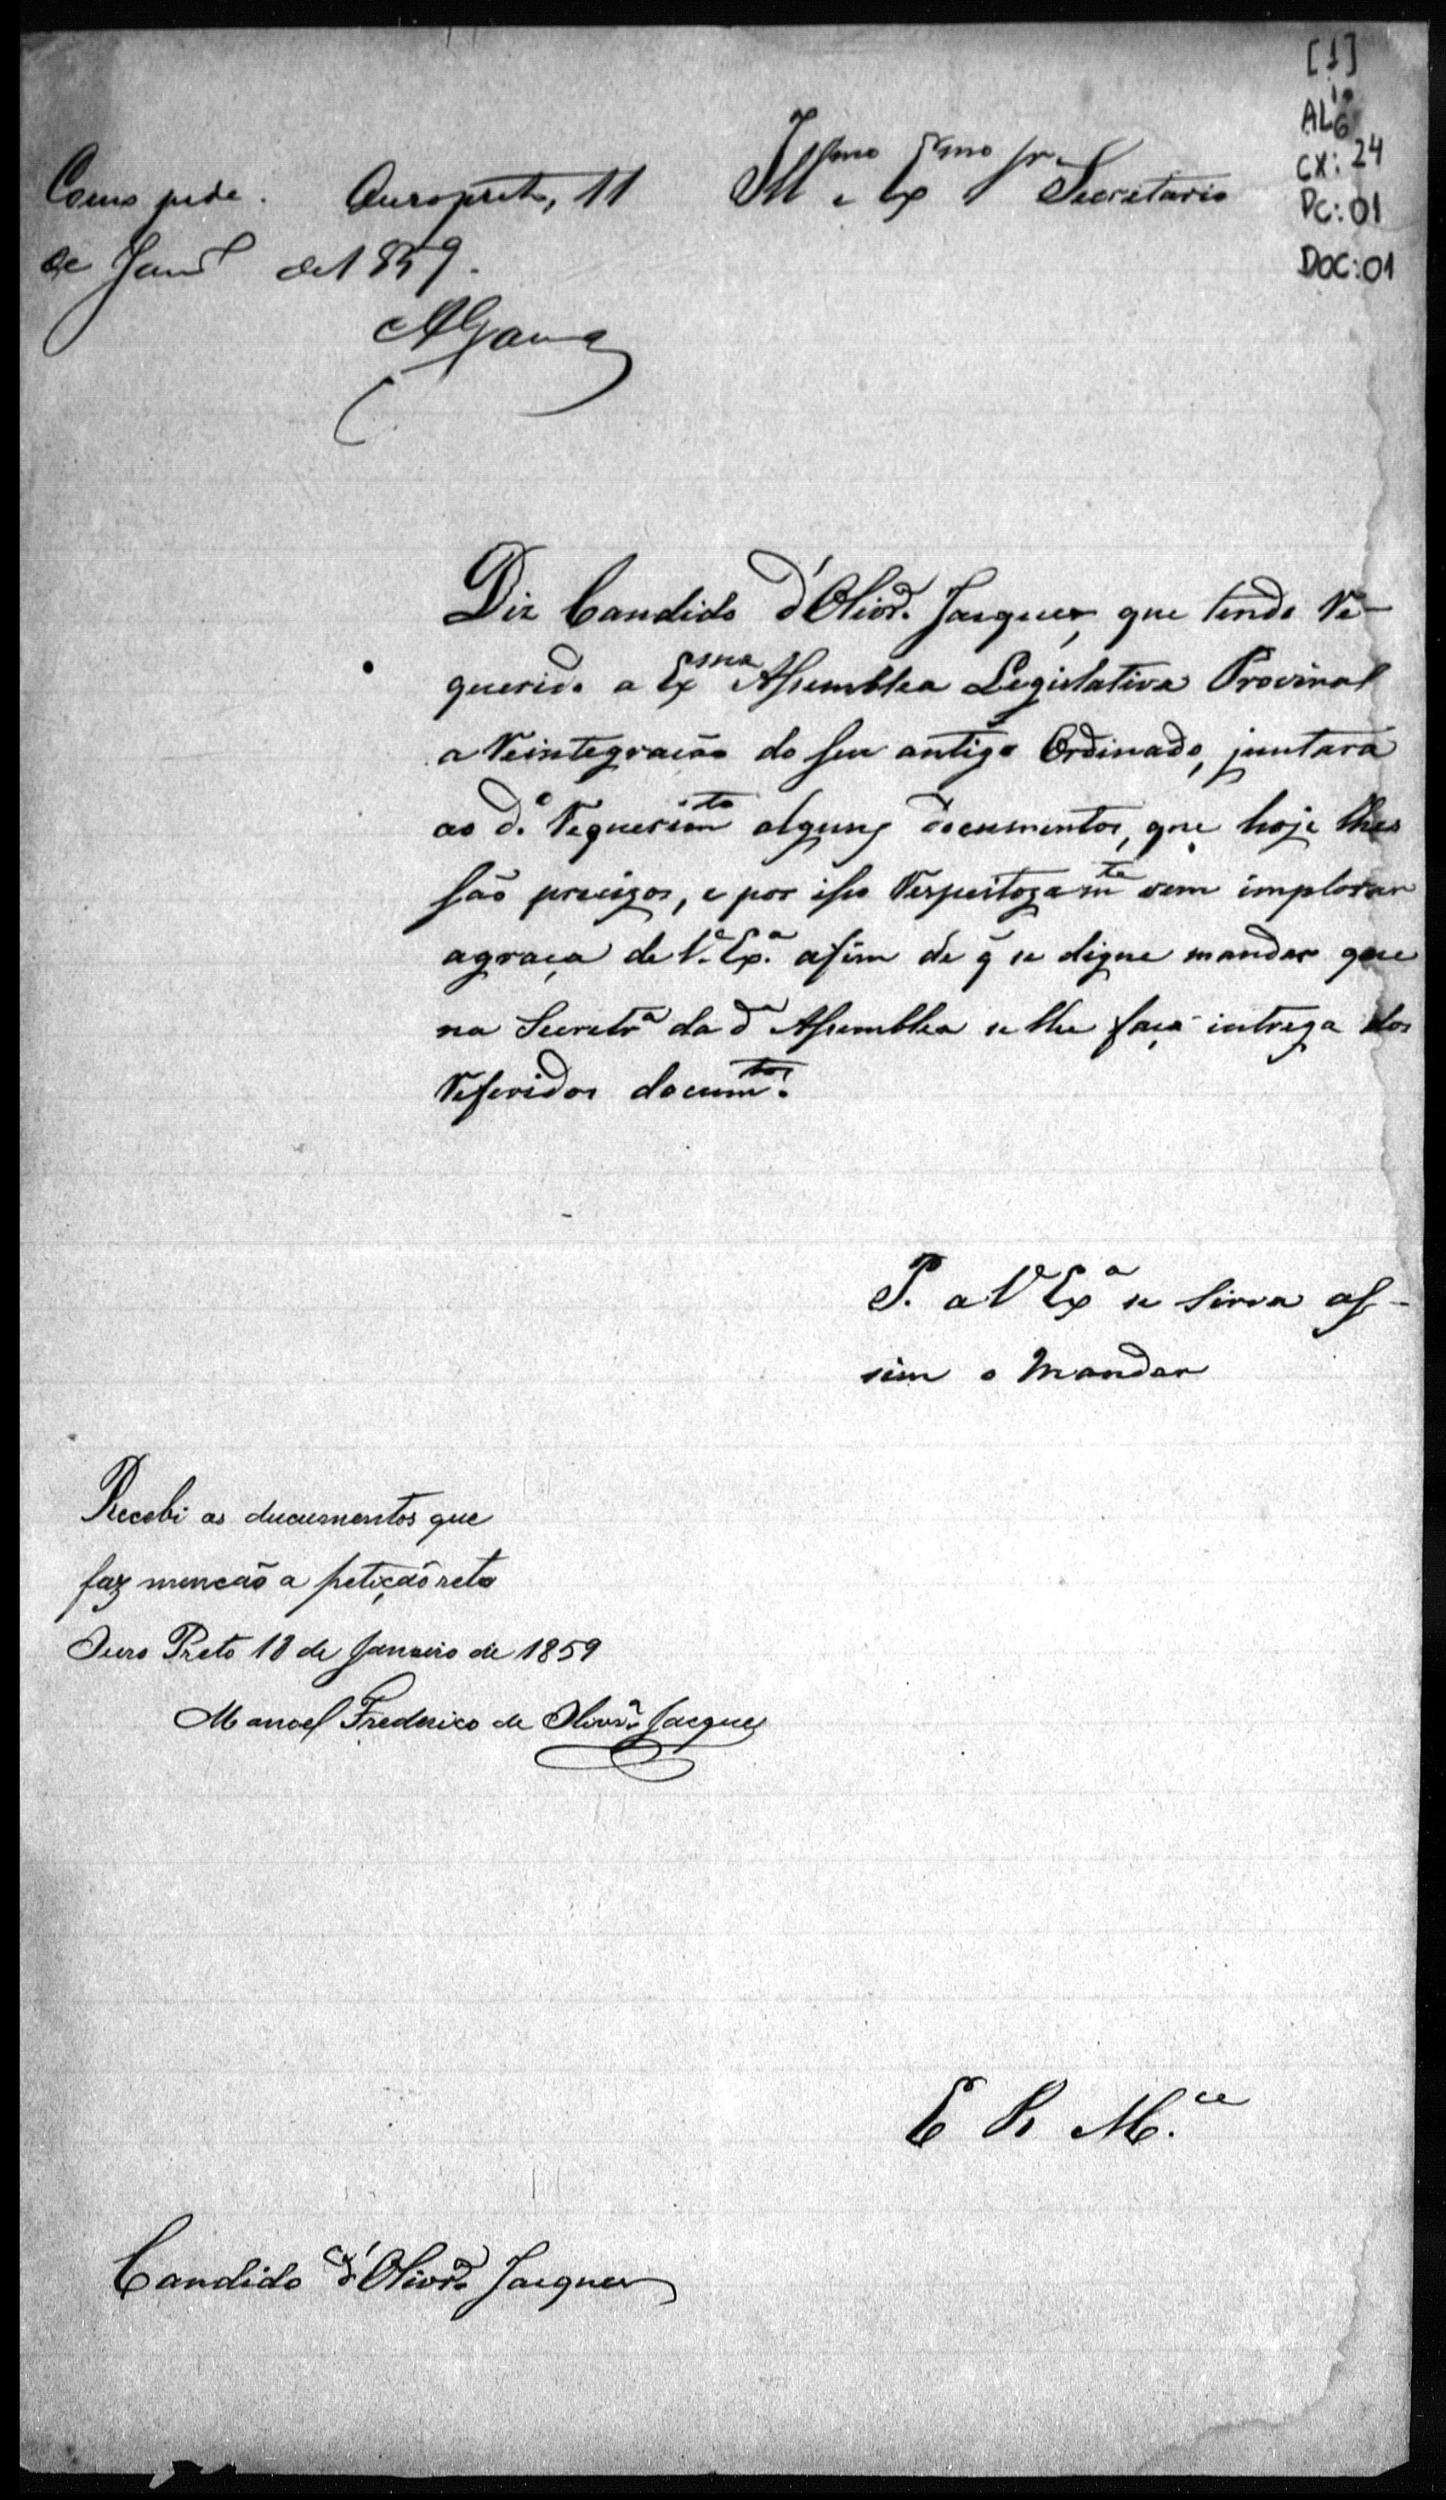 [1]
AL 1.6
CX: 24
PC: 01
DOC: 01
Illmo e Exmo Sr. Secretario
Como pede. Ouropreto, 11
de Janro de 1859.
Diz Candido d'Olivra. Jacques, que tendo re-
querido a Exma Assemblea Legislativa Provinal
a reintegração do seu antigo Ordinado, juntara
ao do. requerimto alguns documentos, que hoje lhes
são precizos, e por isso respeitozamte vem implorar
agraça de V. Exa. afim de q̃ se digne mandar que
na Secretra da da Assemblea se lhe faça intrega dos
referidos documtos.
P. a V Exa se sirva as-
sim o mandar
Recebi os ducumentos que
faz mencão a petição reta
Ouro Preto 18 de Janeiro de 1859
Manoel Frederico de Olivra. Jacques
E R M.ce
Candido d'Olivra. Jacques